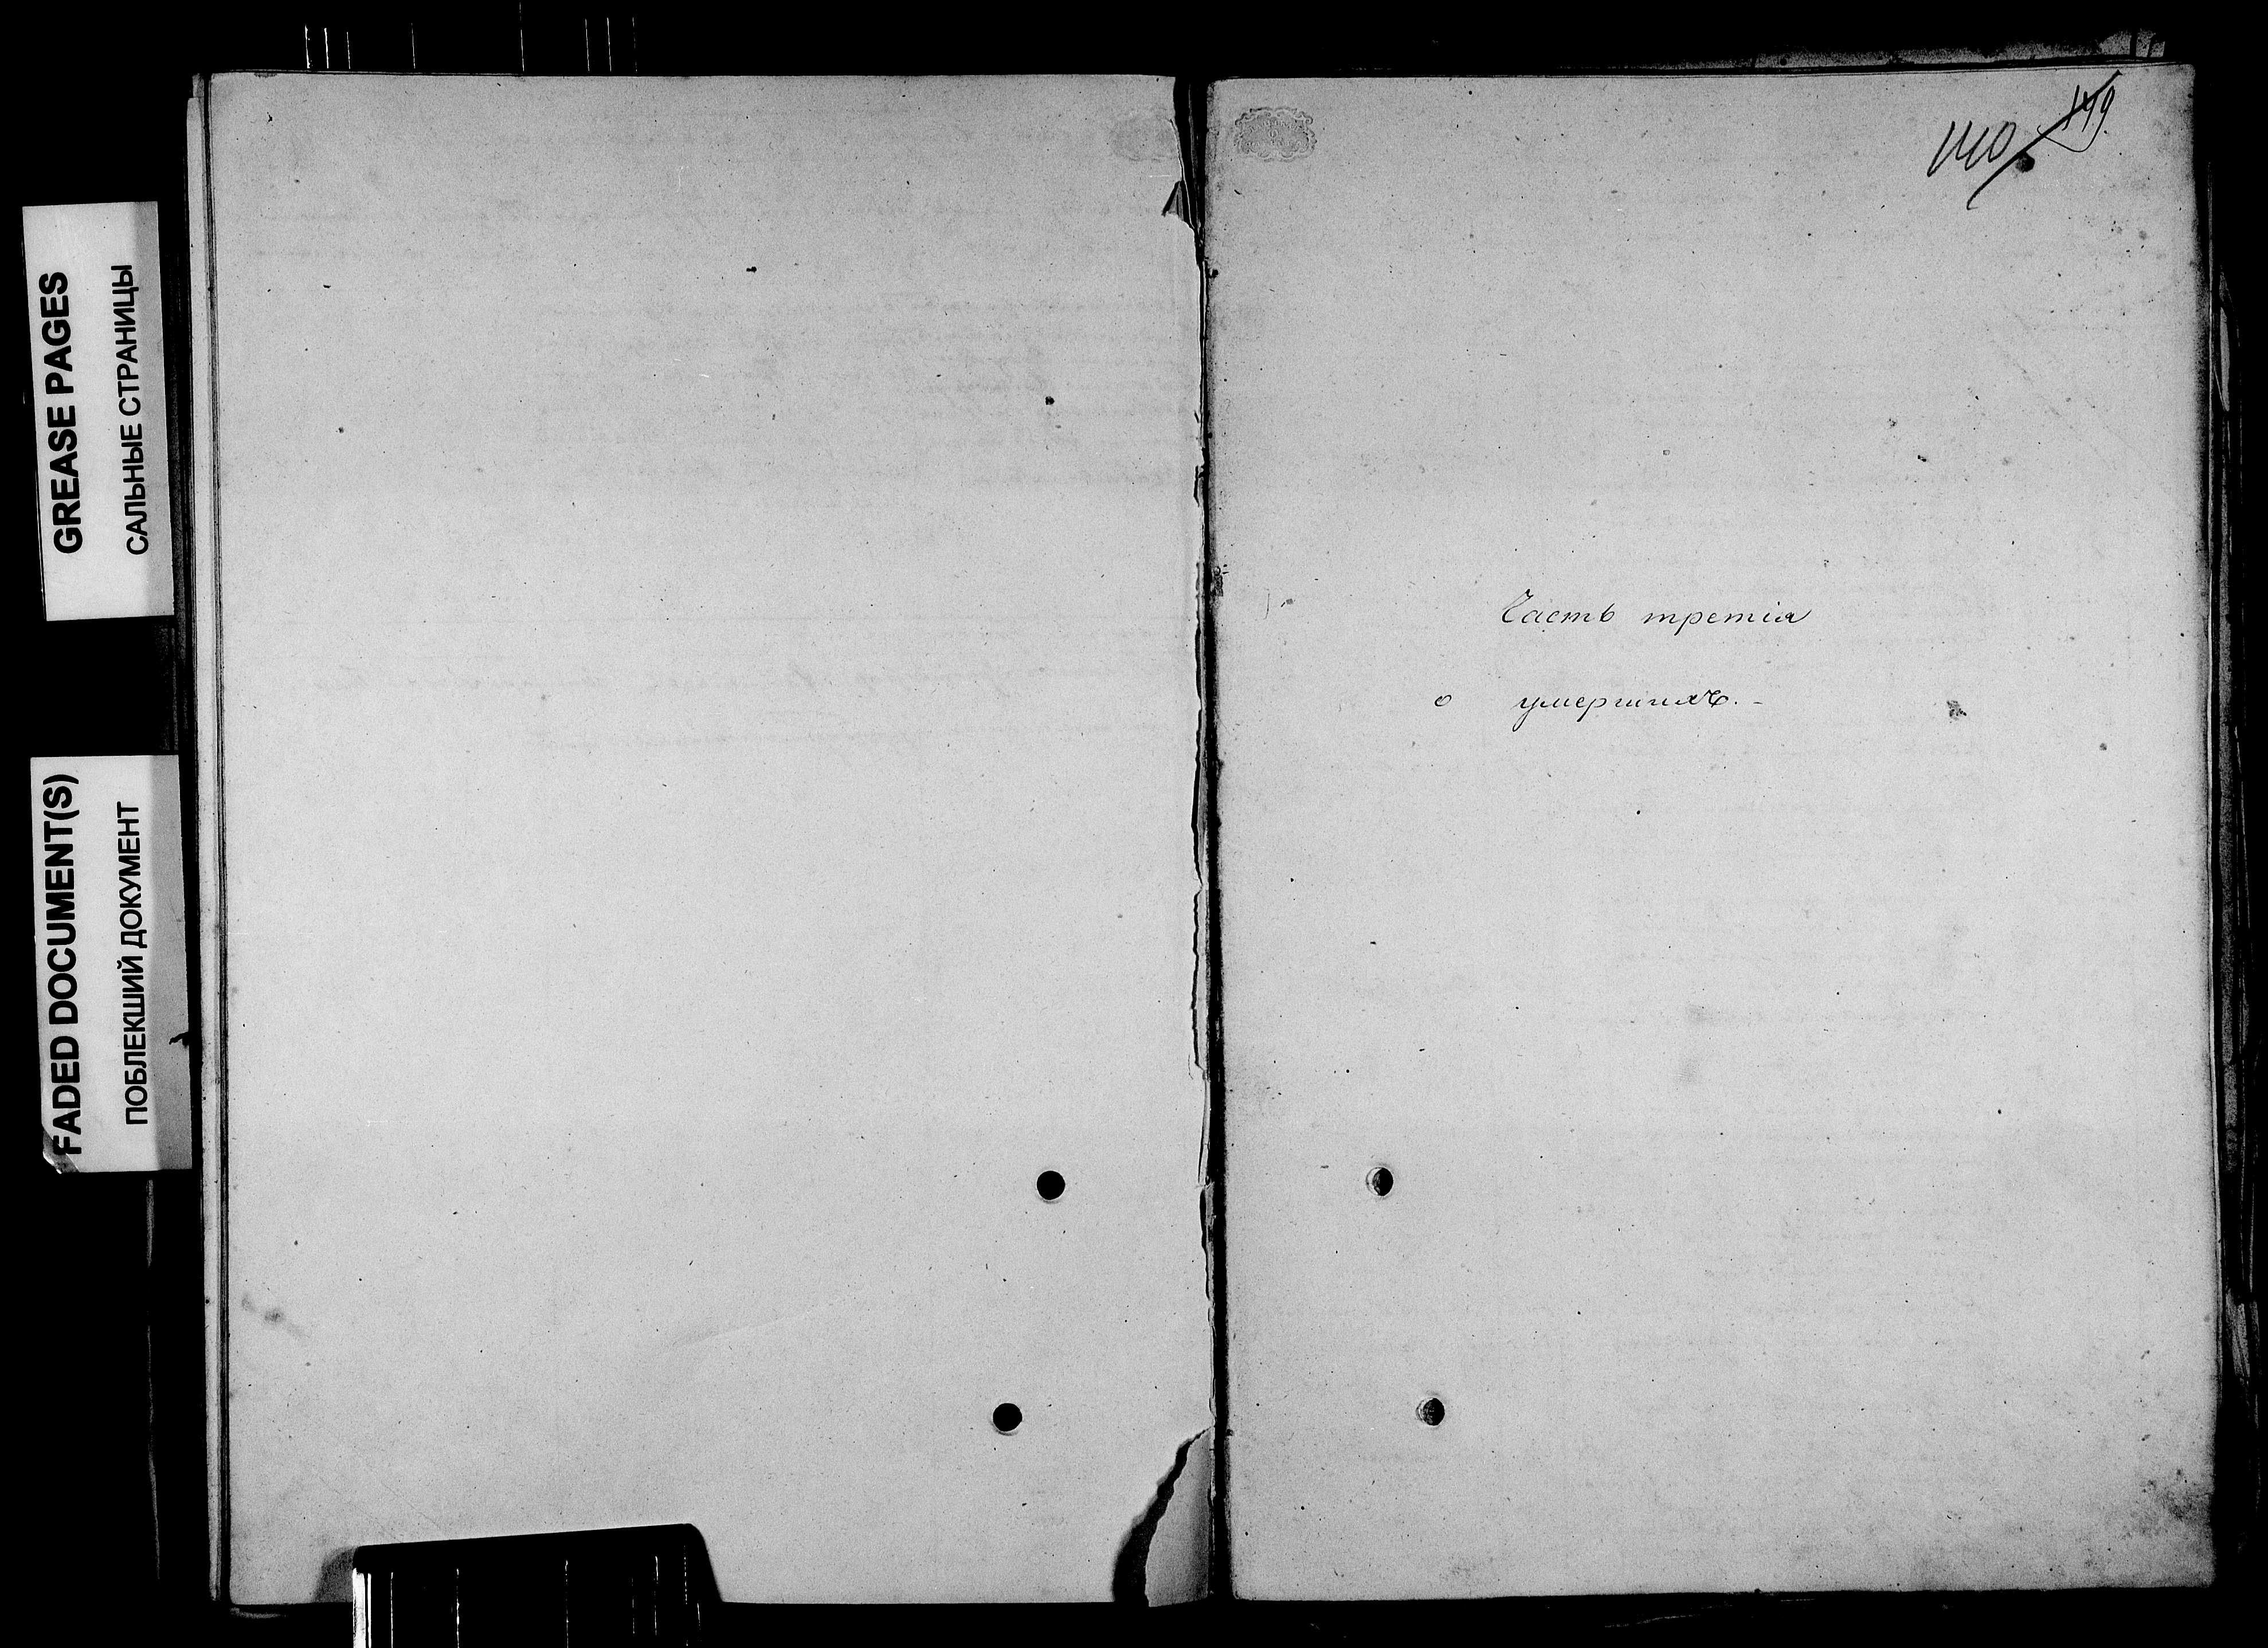 GREASE PAGES
САЛЬНЫЕ СТРАНИЦЫ
FADED DOCUMENT(S)
ПОБЛЕКШИЙ ДОКУМЕНТ
149.
140
Часть третія
о умершихъ. -